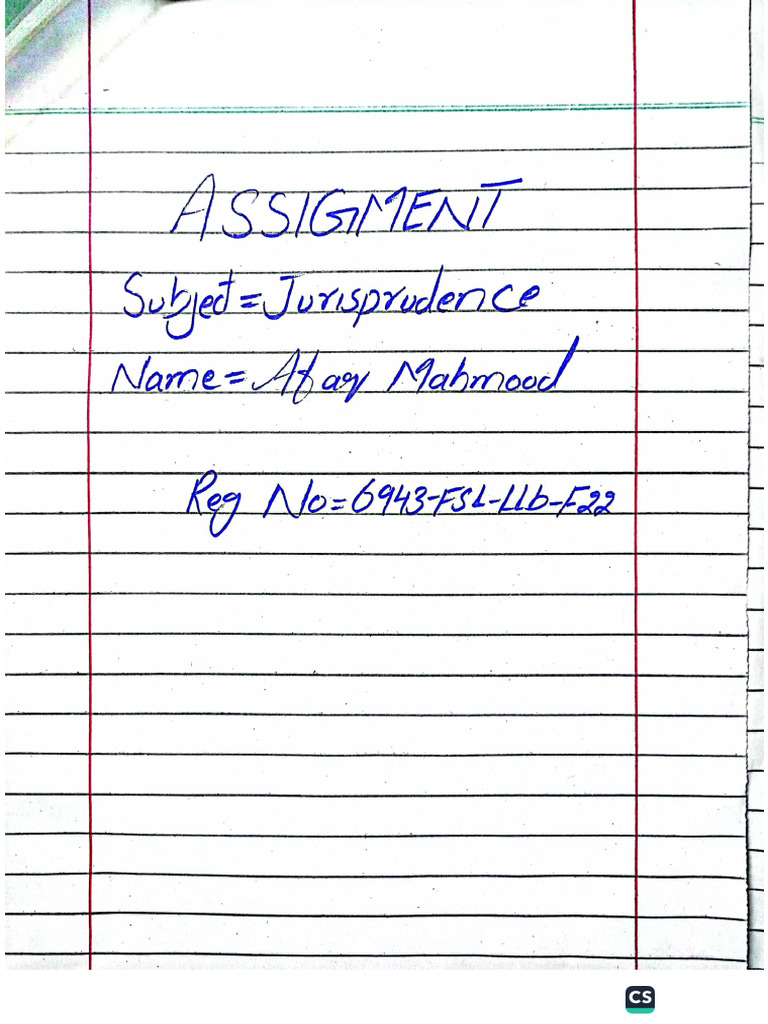 ASSIGMENT
Subject = Jurisprudence
Name = Afaq Mahmood
Reg No = 6943-FSL-LLb-F22
CS